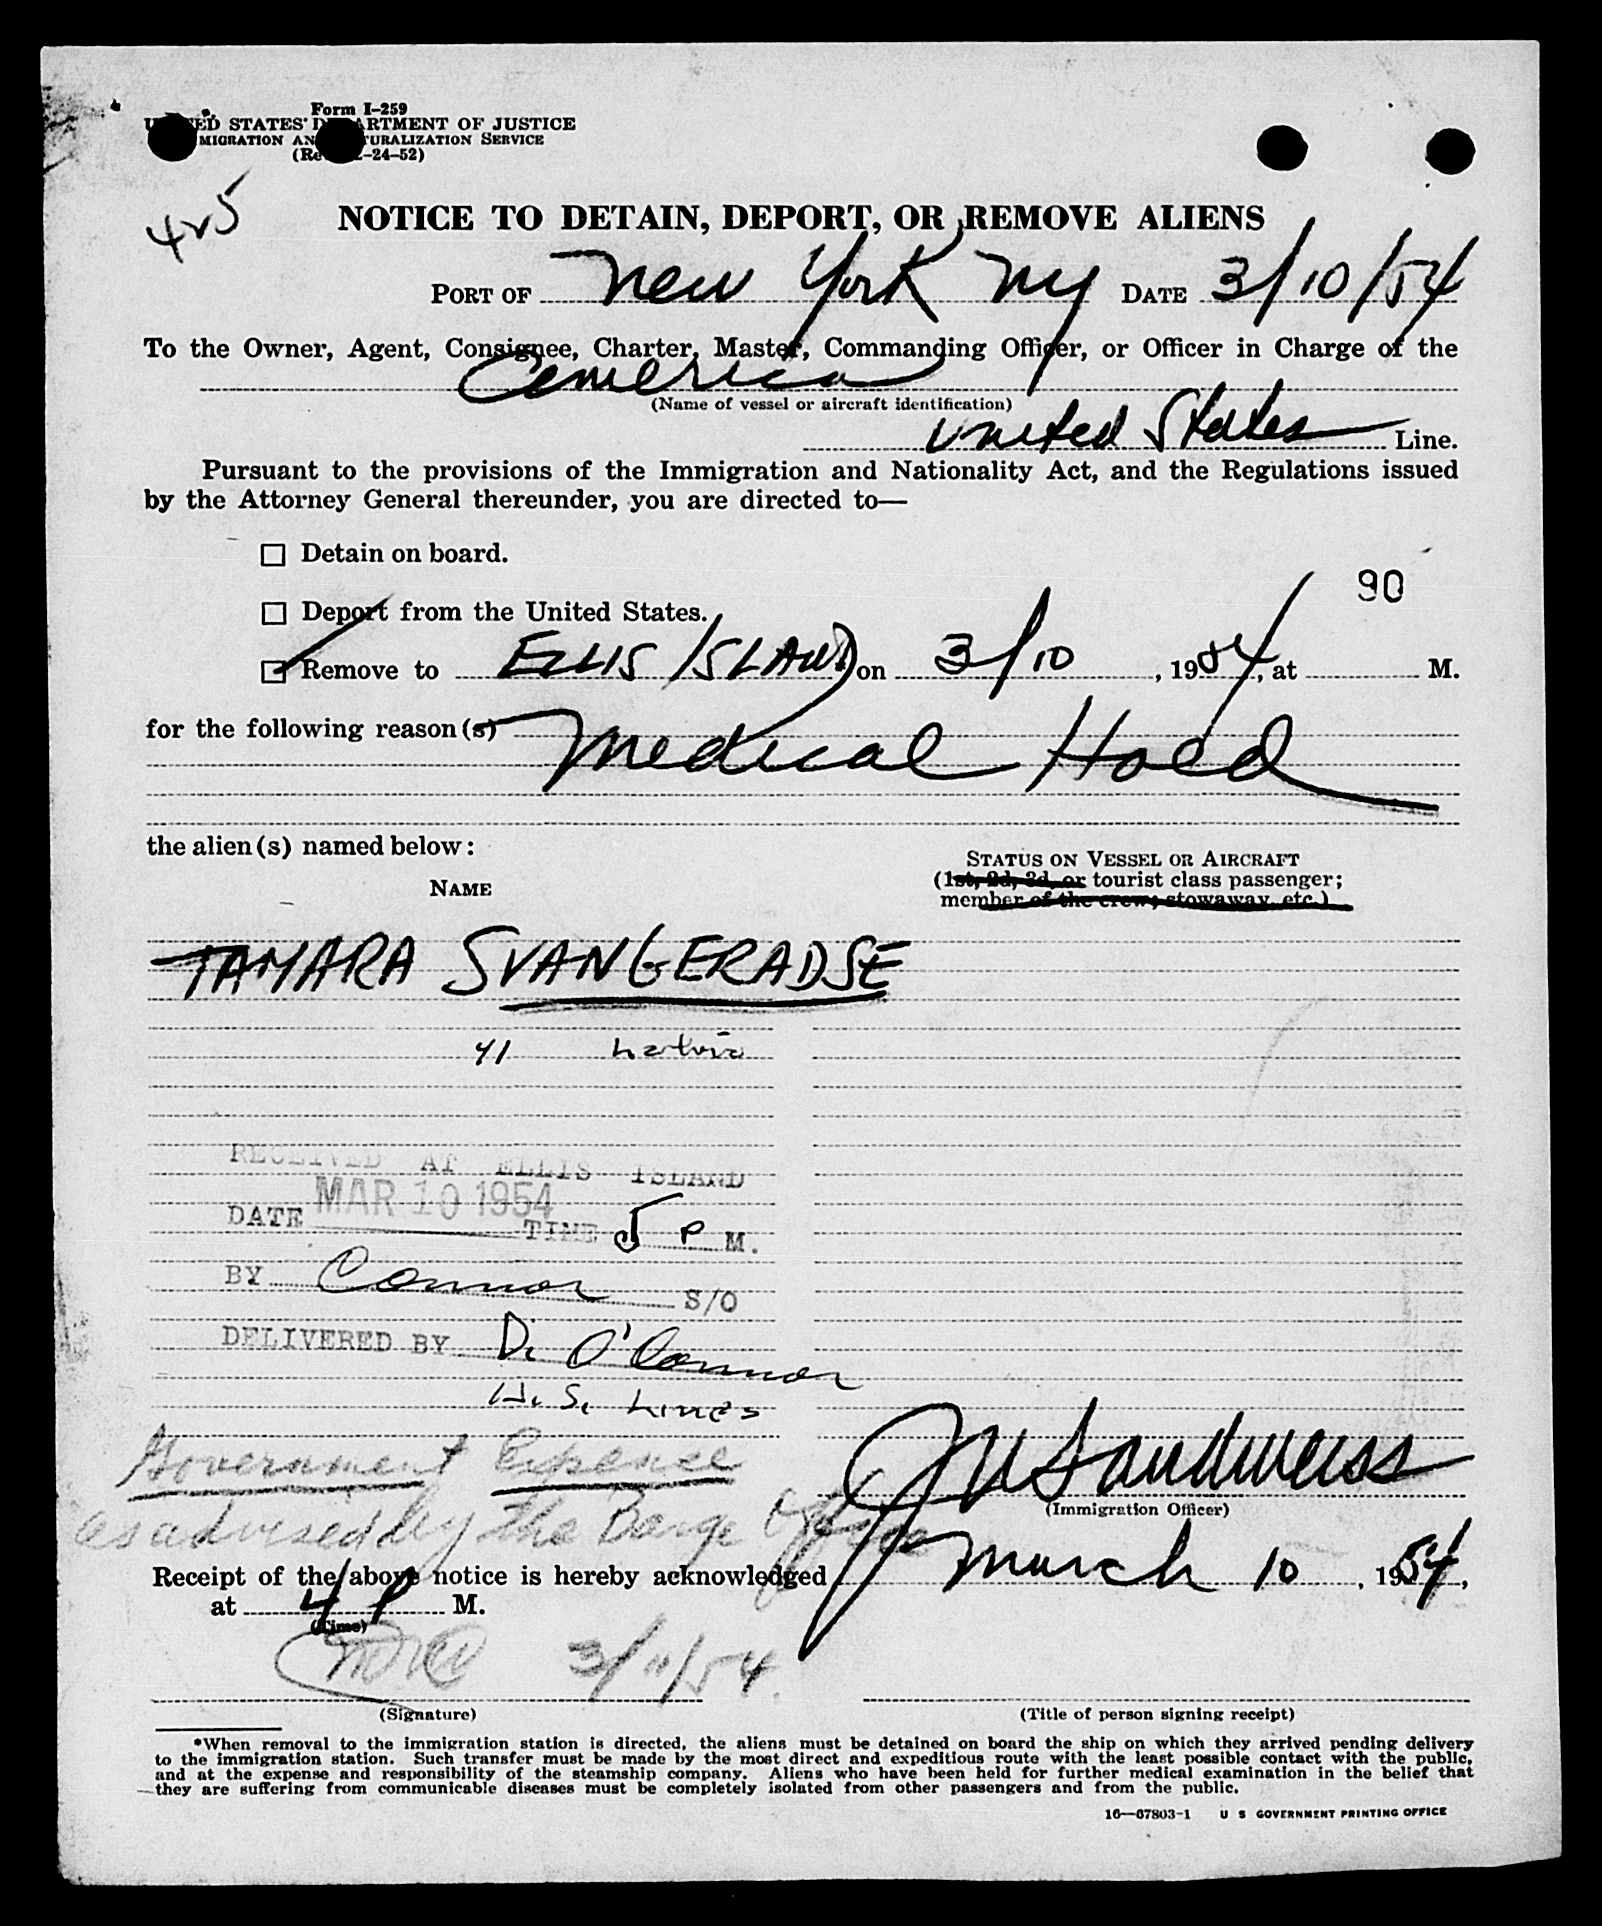 Form I-259
STATES DEPARTMENT OF JUSTICE
NATURALIZATION SERVICE
-24-52)
NOTICE TO DETAIN, DEPORT, OR REMOVE ALIENS
PORT OF New York NY DATE 3/10/54
To the Owner, Agent, Consignee, Charter, Master, Commanding Officer, or Officer in Charge of the
America
(Name of vessel or aircraft identification)
United States Line.
Pursuant to the provisions of the Immigration and Nationality Act, and the Regulations issued
by the Attorney General thereunder, you are directed to—
☐ Detain on board.
90
☐ Deport from the United States.
☑ Remove to ELLIS ISLAND on 3/10, 1954, at M.
for the following reason(s) Medical Hold
the alien(s) named below:
STATUS ON VESSEL OR AIRCRAFT
(1st, 2d, 3d, or tourist class passenger;
NAME
member of the crew; stowaway, etc.)
TAMARA SVANGERADSE
41 Latvia
RECEIVED AT ELLIS ISLAND
DATE MAR 10 1954 TIME 5 P M.
BY Connor S/O
DELIVERED BY D. O'Connor
U. S. Lines
Government Expense
as advised by the Barge Office
J W Sandweiss
(Immigration Officer)
Receipt of the above notice is hereby acknowledged March 10, 1954,
at 4 P M.
(Time)
3/11/54.
(Signature) (Title of person signing receipt)
*When removal to the immigration station is directed, the aliens must be detained on board the ship on which they arrived pending delivery
to the immigration station. Such transfer must be made by the most direct and expeditious route with the least possible contact with the public,
and at the expense and responsibility of the steamship company. Aliens who have been held for further medical examination in the belief that
they are suffering from communicable diseases must be completely isolated from other passengers and from the public.
16—67803-1 U S GOVERNMENT PRINTING OFFICE